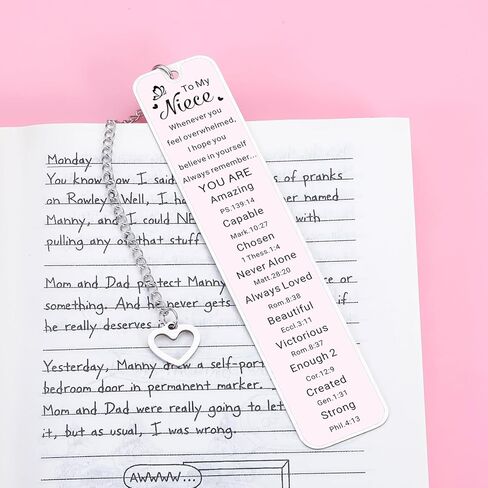 To My
Niece
Whenever you
feel overwhelmed,
I hope you
believe in yourself
Always remember...
YOU ARE
Amazing
PS.139:14
Capable
Mark.10:27
Chosen
1 Thess.1:4
Never Alone
Matt.28:20
Always Loved
Rom.8:38
Beautiful
Eccl.3:11
Victorious
Rom.8:37
Enough 2
Cor.12:9
Created
Gen.1:31
Strong
Phil.4:13
Monday
You know how I said of pranks
on Rowley Well, I named
Manny, and I could with
pulling any of that stuff
Mom and Dad protect Manny or
something. And he never gets if
he really deserves
Yesterday, Manny drew a self-port
bedroom door in permanent marker.
Mom and Dad were really going to let
it, but as usual, I was wrong.
AWWWW...